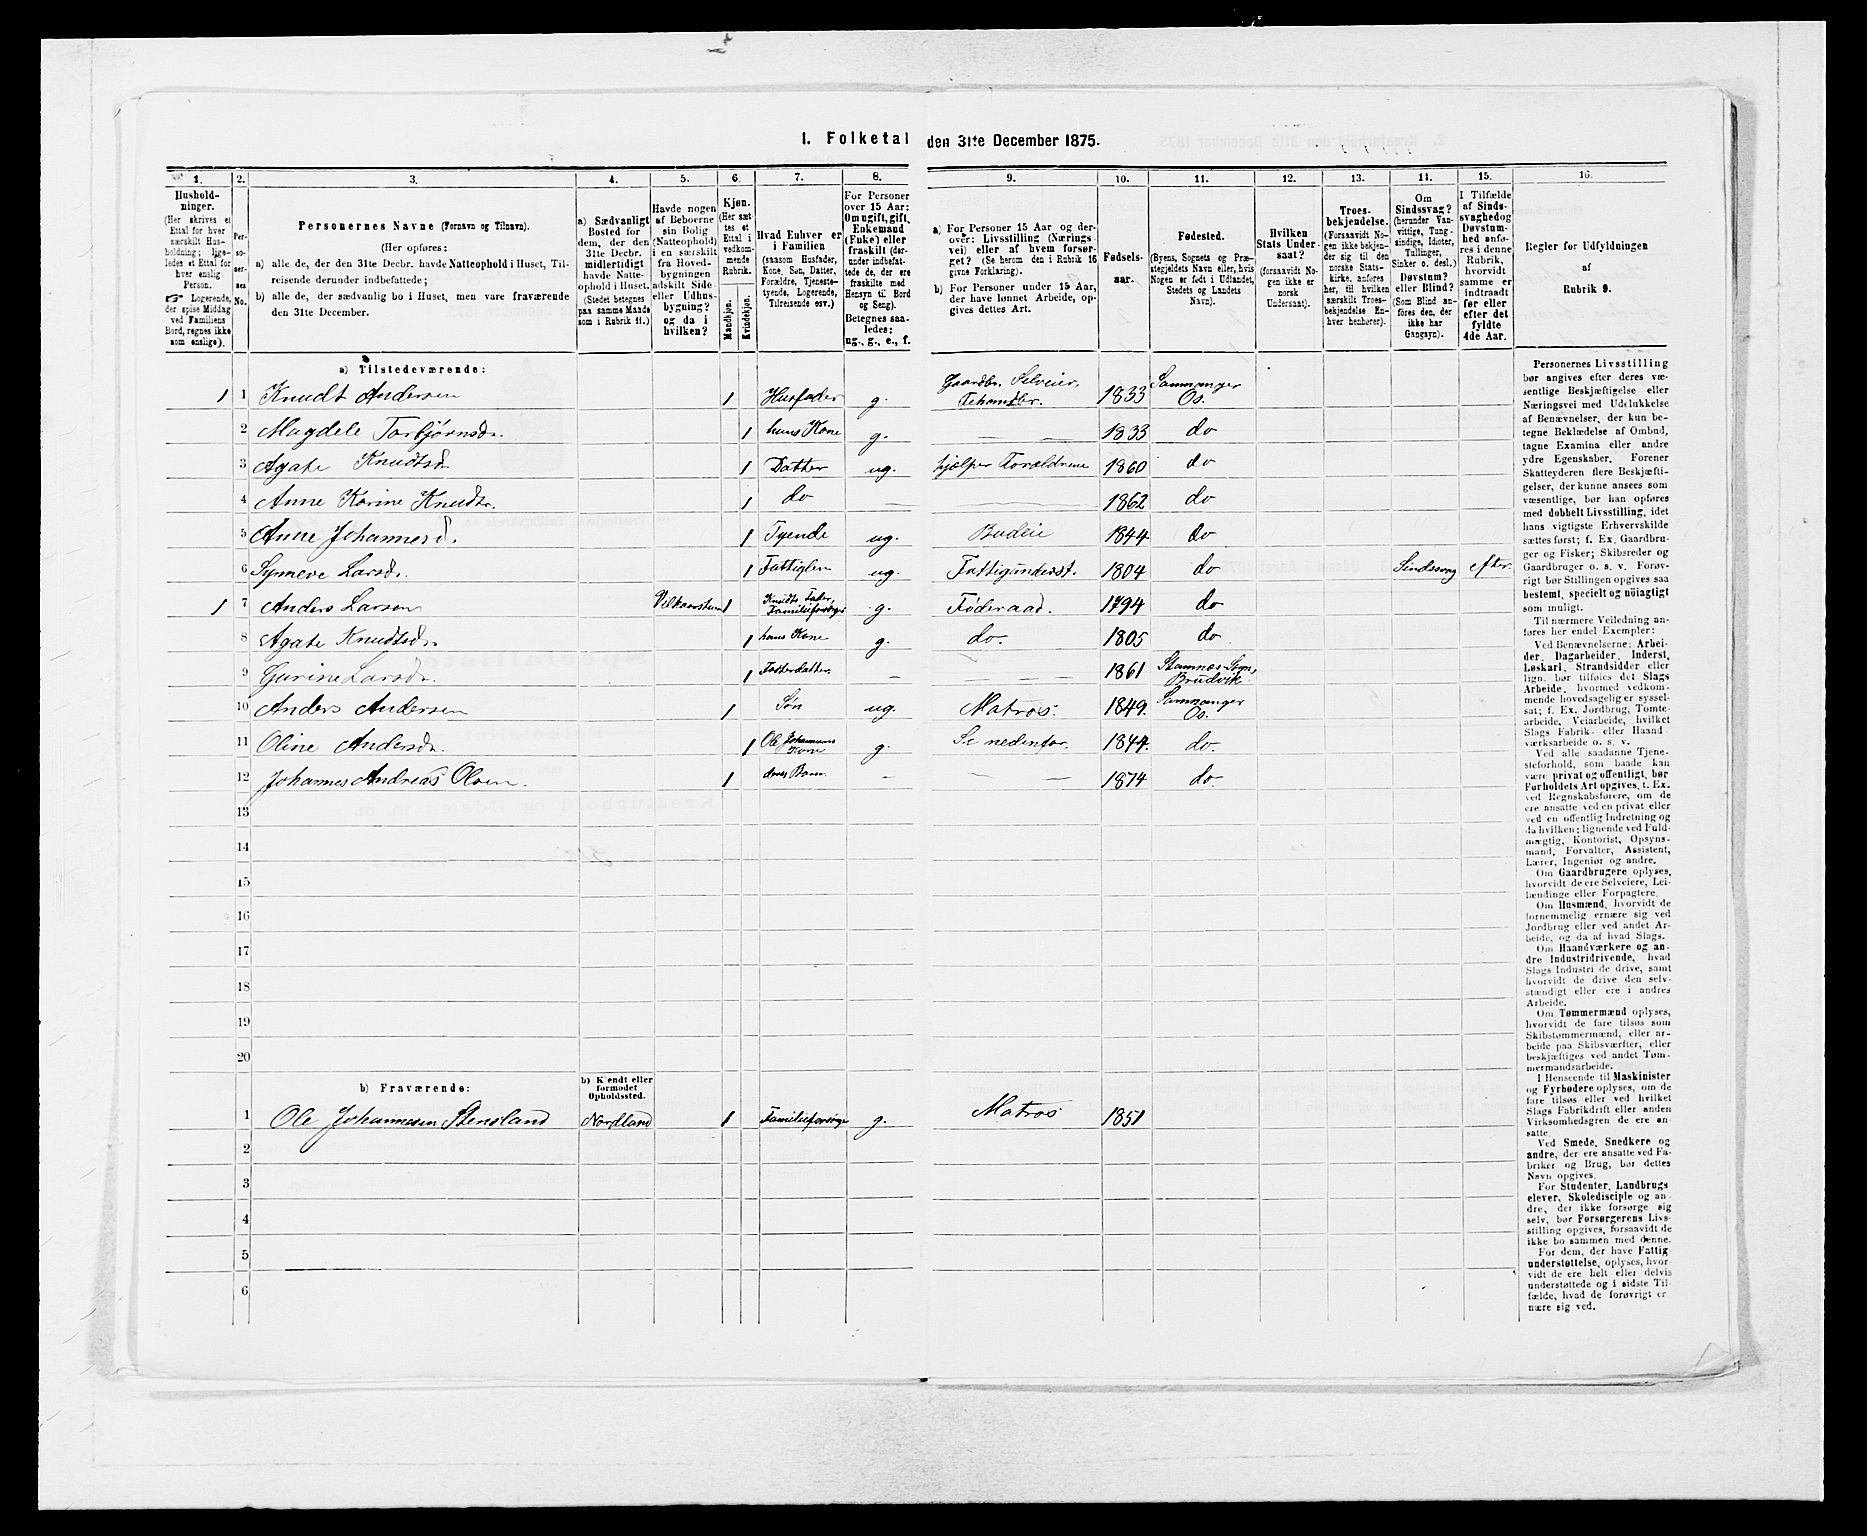 1. Folketal den 31te December 1875.
1. 2. 3. 4. 5. 6. 7. 8. 9. 10. 11. 12. 13. 14. 15. 16.
Hushold-
ninger.
(Her skrives et
Ettal for hver
særskilt Hus-
holdning; lige-
ledes et Ettal for
hver enslig
Person.
☞ Logerende,
der spise Middag
ved Familiens
Bord, regnes ikke
som enslige).
Per-
so-
ner-
nes
No.
Personernes Navne (Fornavn og Tilnavn).
(Her opføres:
a) alle de, der den 31te Decbr. havde Natteophold i Huset, Til-
reisende derunder indbefattede;
b) alle de, der sædvanlig bo i Huset, men vare fraværende
den 31te December.
a) Sædvanligt
Bosted for
dem, der den
31te Decbr.
midlertidigt
havde Natte-
ophold i Huset.
(Stedet betegnes
paa samme Maade
som i Rubrik 11.)
Havde nogen
af Beboerne
sin Bolig
(Natteophold)
i en særskilt
fra Hoved-
bygningen
adskilt Side
eller Udhus-
bygning?
og da i
hvilken?
Kjøn.
(Her sæt-
tes et
Ettal i
vedkom-
mende
Rubrik.
Mandkjøn.
Kvindekjøn.
Hvad Enhver er
i Familien
(saasom Husfader,
Kone, Søn, Datter,
Forældre, Tjeneste-
tyende, Logerende,
Tilreisende osv.)
For Personer
over 15 Aar:
Om ugift, gift,
Enkemand
(Enke) eller
fraskilt (der-
under indbefat-
tede de, der ere
fraskilte med
Hensyn til Bord
og Seng).
Betegnes saa-
ledes:
ug., g., e., f.
a) For Personer 15 Aar og der-
over: Livsstilling (Nærings
vei) eller af hvem forsør-
get? (Se herom den i Rubrik 16
givne Forklaring).
b) For Personer under 15 Aar,
der have lønnet Arbeide, op-
gives dettes Art.
Fødsels-
aar.
Fødested.
(Byens, Sognets og Præ-
stegjeldets Navn eller, hvis
Nogen er født i Udlandet,
Stedets og Landets
Navn).
Hvilken
Stats Under-
saat?
(forsaavidt No-
gen ikke er
norsk
Undersaat).
Troes-
bekjendelse.
(Forsaavidt No-
gen ikke bekjen-
der sig til den
norske Stats-
kirke, anføres
her, til hvilken
særskilt Troes-
bekjendelse En-
hver henhører).
Om
Sindssvag?
(herunder Van-
vittige, Tung-
sindige, Idioter,
Tullinger,
Sinker o. desl.)
Døvstum?
eller Blind?
(Som Blind an-
føres den, der
ikke har
Gangsyn).
I Tilfælde
af Sinds-
svaghed og
Døvstum-
hed anfø-
res i denne
Rubrik,
hvorvidt
samme er
indtraadt
før eller
efter det
fyldte
4de Aar.
Regler for Udfyldningen
af
Rubrik 9.
a) Tilstedeværende:
1 1 Knudt Andersen 1 Husfader g. Gaardbr. Selveier, 1833 Samnanger Os.
2 Magdele Torbjørnsdr. 1 hans Kone g. — — 1833 do
3 Agate Knudtsd 1 Datter ug. hjælper Forældrene 1860 do
4 Anne Karine Knudtr. 1 do — 1862 do
5 Anne Johannesd. 1 Tyende ug. Budeie 1844 do
6 Synneve Larsdr. 1 Fattiglem ug. Fattigunderst. 1804 do Sindssvag efter.
1 7 Anders Larsen 1 Knudts Fader, Familieforsørger g. Føderaad. 1794 do
8 Agate Knudtsdr. 1 hans Kone g. do. 1805 do
9 Gurine Larsdr. 1 Fosterdatter — — — 1861 Stamnes-Sogn, Brudvik.
10 Anders Andersen 1 Søn ug. Matros. 1849. Samnanger Os.
11 Oline Andersdr. 1 Ole Johannesens Kone g. Se nedenfor. 1844. do.
12 Johannes Andreas Olsen. 1 deres Barn — — — 1874 do.
13
14
15
16
17
18
19
20
b) Fraværende:
b) Kjendt eller
formodet
Opholdssted.
1 Ole Johannesen Stensland Nordland 1 Familieforsørger g. Matros 1851
2
3
4
5
6
Personernes Livsstilling
bør angives efter deres væ-
sentlige Beskjæftigelse eller
Næringsvei med Udelukkelse
af Benævnelser, der kun be-
tegne Beklædelse af Ombud,
tagne Examina eller andre
ydre Egenskaber. Forener
Skatteyderen flere Beskjæfti-
gelser, der kunne ansees som
væsentlige, bør han opføres
med dobbelt Livsstilling, idet
hans vigtigste Erhvervskilde
sættes først; f. Ex. Gaardbru-
ger og Fisker; Skibsreder og
Gaardbruger o. s. v. Forøv-
rigt bør Stillingen opgives saa
bestemt, specielt og nöiagtigt
som muligt.
Til nærmere Veiledning an-
føres her endel Exempler:
Ved Benævnelserne: Arbei-
der, Dagarbeider, Inderst,
Løskarl, Strandsidder eller
lign. bør tilføies det Slags
Arbeide, hvormed vedkom-
mende hovedsagelig er syssel-
sat; f. Ex. Jordbrug, Tomte-
arbeide, Veiarbeide, hvilket
Slags Fabrik- eller Haand-
værksarbeide o. s. v.
Ved alle saadanne Tjene-
steforhold, som baade kan
være privat og offentligt, bør
Forholdets Art opgives, t. Ex.
ved Regnskabsførere, om de
ere ansatte ved en privat eller
ved en offentlig Indretning og
da hvilken; lignende ved Fuld-
mægtig, Kontorist, Opsyns-
mand, Forvalter, Assistent,
Lærer, Ingeniør og andre.
Om Gaardbrugere oplyses,
hvorvidt de ere Selveiere, Lei-
lændinge eller Forpagtere.
Om Husmænd, hvorvidt de
fornemmelig ernære sig ved
Jordbrug eller ved andet Ar-
beide, og da af hvad Slags.
Om Haandværkere og an-
dre Industridrivende, hvad
Slags Industri de drive, samt
hvorvidt de drive den selv-
stændigt eller ere i andres
Arbeide.
Om Tømmermænd oplyses,
hvorvidt de fare tilsøs som
Skibstømmermænd, eller ar-
beide paa Skibsværfter, eller
beskjæftiges ved andet Tøm-
mermandsarbeide.
I Henseende til Maskinister
og Fyrbødere oplyses, om de
fare tilsøs eller ved hvilket
Slags Fabrikdrift eller anden
Virksomhedsgren de ere an-
satte.
Ved Smede, Snedkere og
andre, der ere ansatte ved Fa-
briker og Brug, bør dettes
Navn opgives.
For Studenter, Landbrugs
elever, Skoledisciple og an-
dre, der ikke forsørge sig
selv, bør Forsørgerens Livs-
stilling opgives, forsaavidt de
ikke bo sammen med denne.
For dem, der have Fattig
understøttelse, oplyses, hvor-
vidt de ere helt eller delvis
understøttede og i sidste Til-
fælde, hvad de forøvrigt er
nære sig ved.